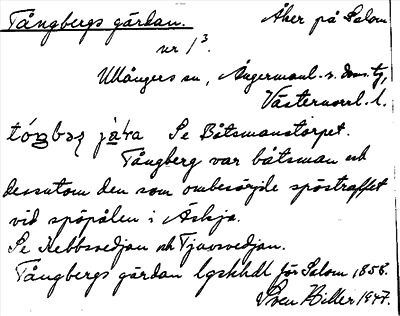 Tångbergs gärdan. Åker på Salom
nr 1³.
Ullångers sn, Ångermanl. s. doms.,
Västernorrl. l.
Se Båtsmanstorpet.
Tångberg var båtsman och
dessutom den som ombesörjde spöstraffet
vid spöpålen i Äskja.
Se Kebbsvedjan och Tjuvsvedjan.
Tångbergs gärdan lgskhdl för Salom 1858.
Sven Hiller 1947.